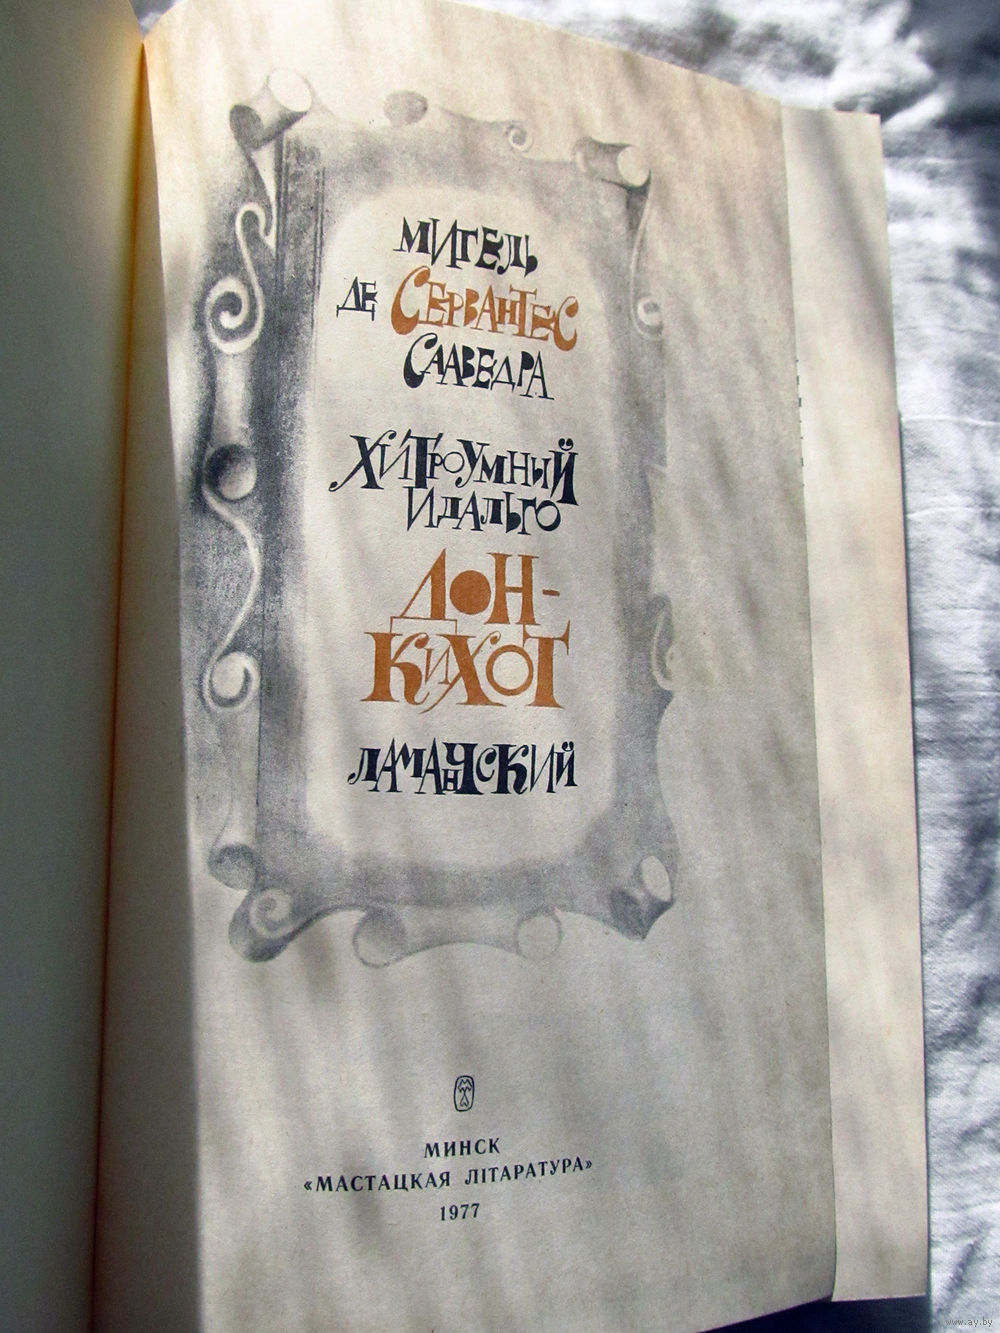 МИГЕЛЬ
ДЕ СЕРВАНТЕС
СААВЕДРА
ХИТРОУМНЫЙ
ИДАЛЬГО
ДОН-
КИХОТ
ЛАМАНЧСКИЙ
МИНСК
«МАСТАЦКАЯ ЛІТАРАТУРА»
1977
www.ay.by